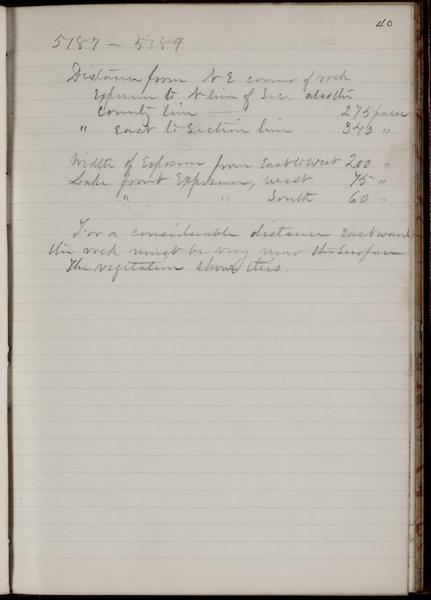 40
5187 – 5189
Distance from N E corner of rock
exposure to N line of Sec. also the
County line — 275 paces
" East to Section line 340 "
Width of Exposure from East to West 200 "
Lake front Exposure, west 75 "
" " South 60 "
For a considerable distance Eastward
the rock must be very near the surface
The vegitation shows this.